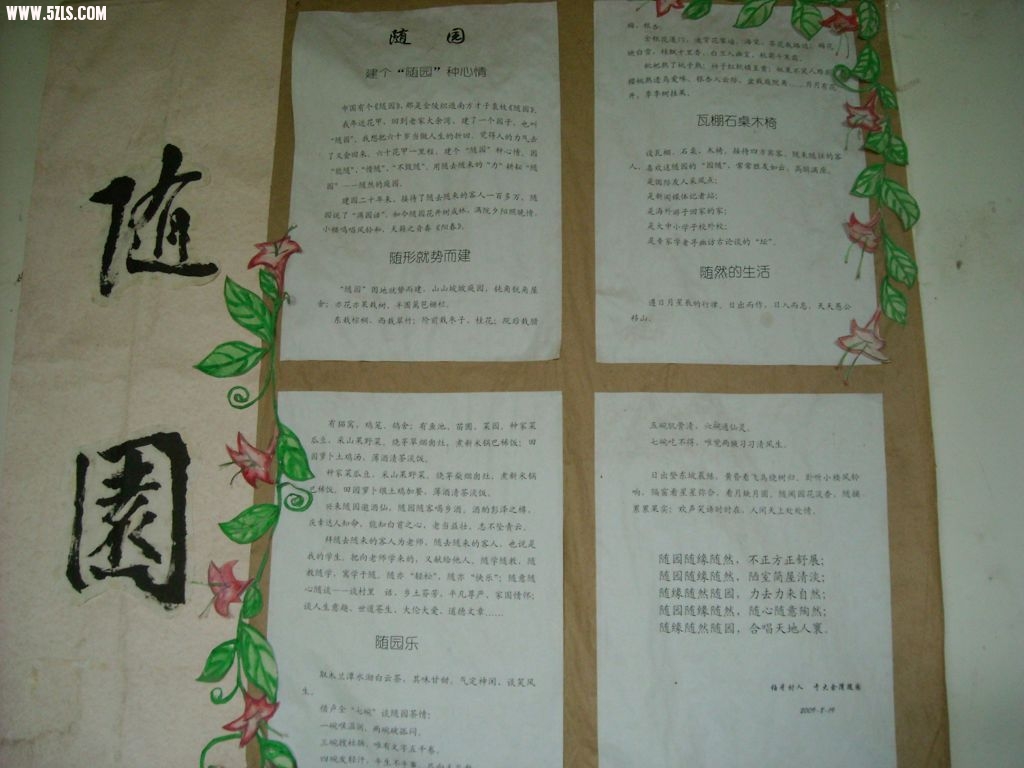 WWW.5ZLS.COM
随
園
随 园
建个“随园”种心情
中国有个《随园》，那是金陵织造南方才子袁枚《随园》。
我年近花甲，回到老家大余湾，建了一个园子，也叫
“随园”，我想把六十岁当做人生的折回，觉得人的力气去
了又会回来，六十花甲一里程，建个“随园”种心情。因
“能随”，“情随”，“不能随”，用随去随来的“力”耕耘“随
园”——随然的庭园。
建园二十年来，接待了随去随来的客人一百多万，随
园说了“满园话”。如今随园花卉树成林，满院夕阳照晚情，
小楼鸣唱风铃和，天籁之音奏《阳春》。
随形就势而建
“随园”因地就势而建，山山坡坡庭园，钝角锐角屋
舍；亦花亦果栽树，半圈篱笆栅栏。
东栽棕榈，西栽翠竹；阶前栽冬子，桂花；院后栽腊
梅，银杏。
映白雪，桂飘十里香，
井，季季树挂果。
瓦棚石桌木椅
设瓦棚，石桌，木椅，接待四方宾客。随来随往的客
人，喜欢这随园的“园随”，常常胜友如云，高朋满座。
是国际友人采风点；
是新闻媒体记者站；
是海外游子回家的家；
是大中小学子校外校；
是专家学者寻幽访古论谈的“坛”。
随然的生活
遵日月星辰的行律，日出而作，日入而息，天天愚公
移山。
有猫窝，鸡笼，鸽舍；有鱼池，苗圃，菜园，种家菜
瓜豆，采山菜野菜，烧茅草烟囱灶，煮新米锅巴稀饭；田
园萝卜土鸡汤，薄酒清茶淡饭。
种家菜瓜豆，采山菜野菜，烧茅柴烟囱灶，煮新米锅
巴稀饭，田园萝卜煨土鸡加餐，薄酒清茶淡饭。
兴来随园邀酒仙，随园随客喝乡酒，酒酌彭泽之樽，
庆幸达人知命，能知白首之心，老当益壮，志不坠青云。
拜随去随来的客人为老师，随去随来的客人，也说是
我的学生。把向老师学来的，又献给他人，随学随教，随
教随学，寓学于随，随亦“轻松”，随亦“快乐”；随意随
心随谈——谈村里 话，乡土芬芳，平凡尊严，家国情怀；
谈人生意趣，世道苍生，大伦大爱，道德文章……
随园乐
取木兰潭水湖白云茶，其味甘甜，气定神闲，谈笑风
生。
借卢仝“七碗”谈随园茶情：
一碗喉温润，两碗破孤闷。
三碗搜枯肠，唯有文字五千卷。
四碗发轻汗，
五碗肌骨清，六碗通仙灵。
七碗吃不得，唯觉两腋习习清风生。
日出登东坡晨练，黄昏看飞鸟绕树归，卧听小楼风铃
响，隔窗看星星弥合，看月缺月圆，随闻园花淡香，随摘
累累果实；欢声笑语时时在，人间天上处处情。
随园随缘随然，不正方正舒展；
随园随缘随然，陋室简屋清淡；
随缘随然随园，力去力来自然；
随园随缘随然，随心随意陶然；
随缘随然随园，合唱天地人寰。
2009-5-19